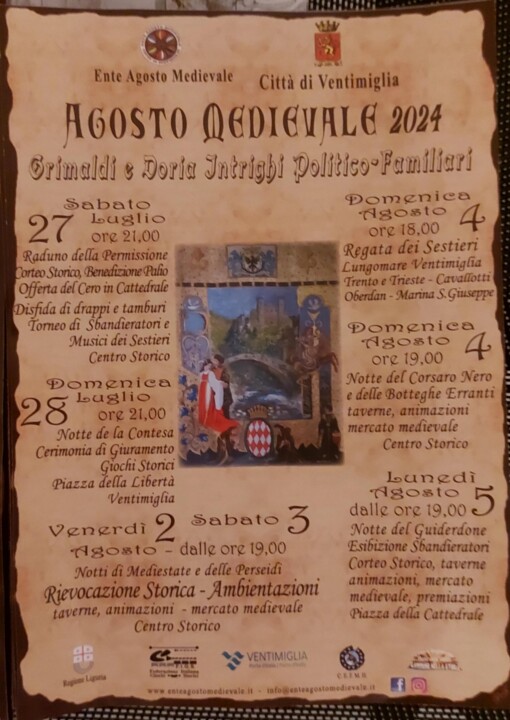 Ente Agosto Medievale
Città di Ventimiglia
AGOSTO MEDIEVALE 2024
Grimaldi e Doria Intrighi Politico-Familiari
Sabato
27 Luglio
ore 21,00
Raduno della Permissione
Corteo Storico, Benedizione Palio
Offerta del Cero in Cattedrale
Disfida di drappi e tamburi
Torneo di Sbandieratori e
Musici dei Sestieri
Centro Storico
Domenica
28 Luglio
ore 21,00
Notte de la Contesa
Cerimonia di Giuramento
Giochi Storici
Piazza della Libertà
Ventimiglia
Venerdì 2 Sabato 3
Agosto - dalle ore 19,00
Notti di Mediestate e delle Perseidi
Rievocazione Storica - Ambientazioni
taverne, animazioni - mercato medievale
Centro Storico
Domenica
Agosto 4
ore 18,00
Regata dei Sestieri
Lungomare Ventimiglia
Trento e Trieste - Cavallotti
Oberdan - Marina S.Giuseppe
Domenica
Agosto 4
ore 19,00
Notte del Corsaro Nero
e delle Botteghe Erranti
taverne, animazioni
mercato medievale
Centro Storico
Lunedì
Agosto 5
dalle ore 19,00
Notte del Guiderdone
Esibizione Sbandieratori
Corteo Storico, taverne
animazioni, mercato
medievale, premiazioni
Piazza della Cattedrale
Regione Liguria
Federazione Italiana
Giochi Storici
VENTIMIGLIA
C.E.S.M.R.
www.enteagostomedievale.it - info@enteagostomedievale.it